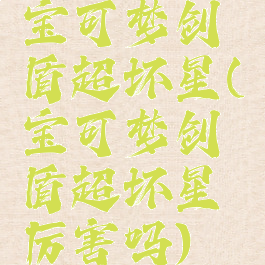 宝可梦剑
盾超坏星(
宝可梦剑
盾超坏星
厉害吗)